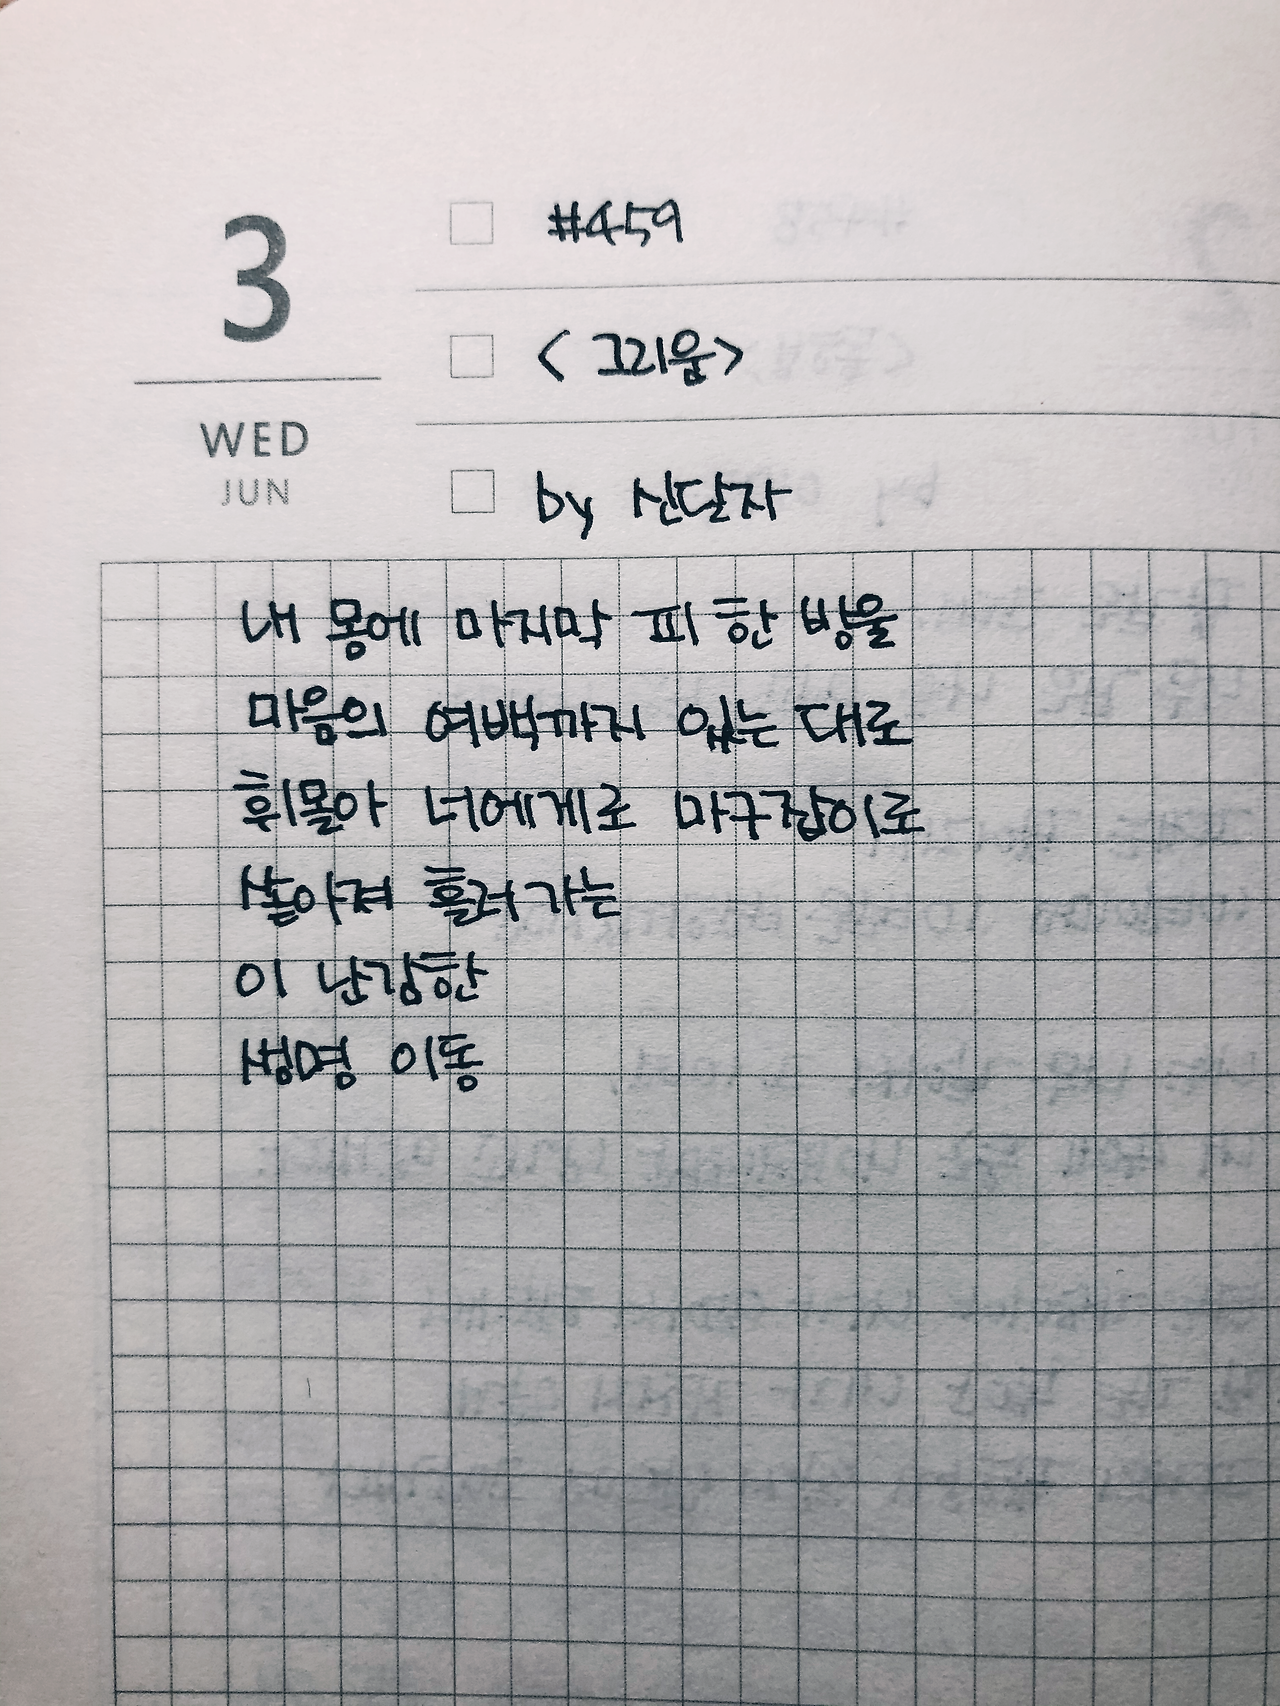 3
WED
JUN
#459
<그리움>
by 신달자
내 몸에 마지막 피 한 방울
마음의 여백까지 있는 대로
휘몰아 너에게로 마구잡이로
쏟아져 흘러 가는
이 난감한
생명 이동